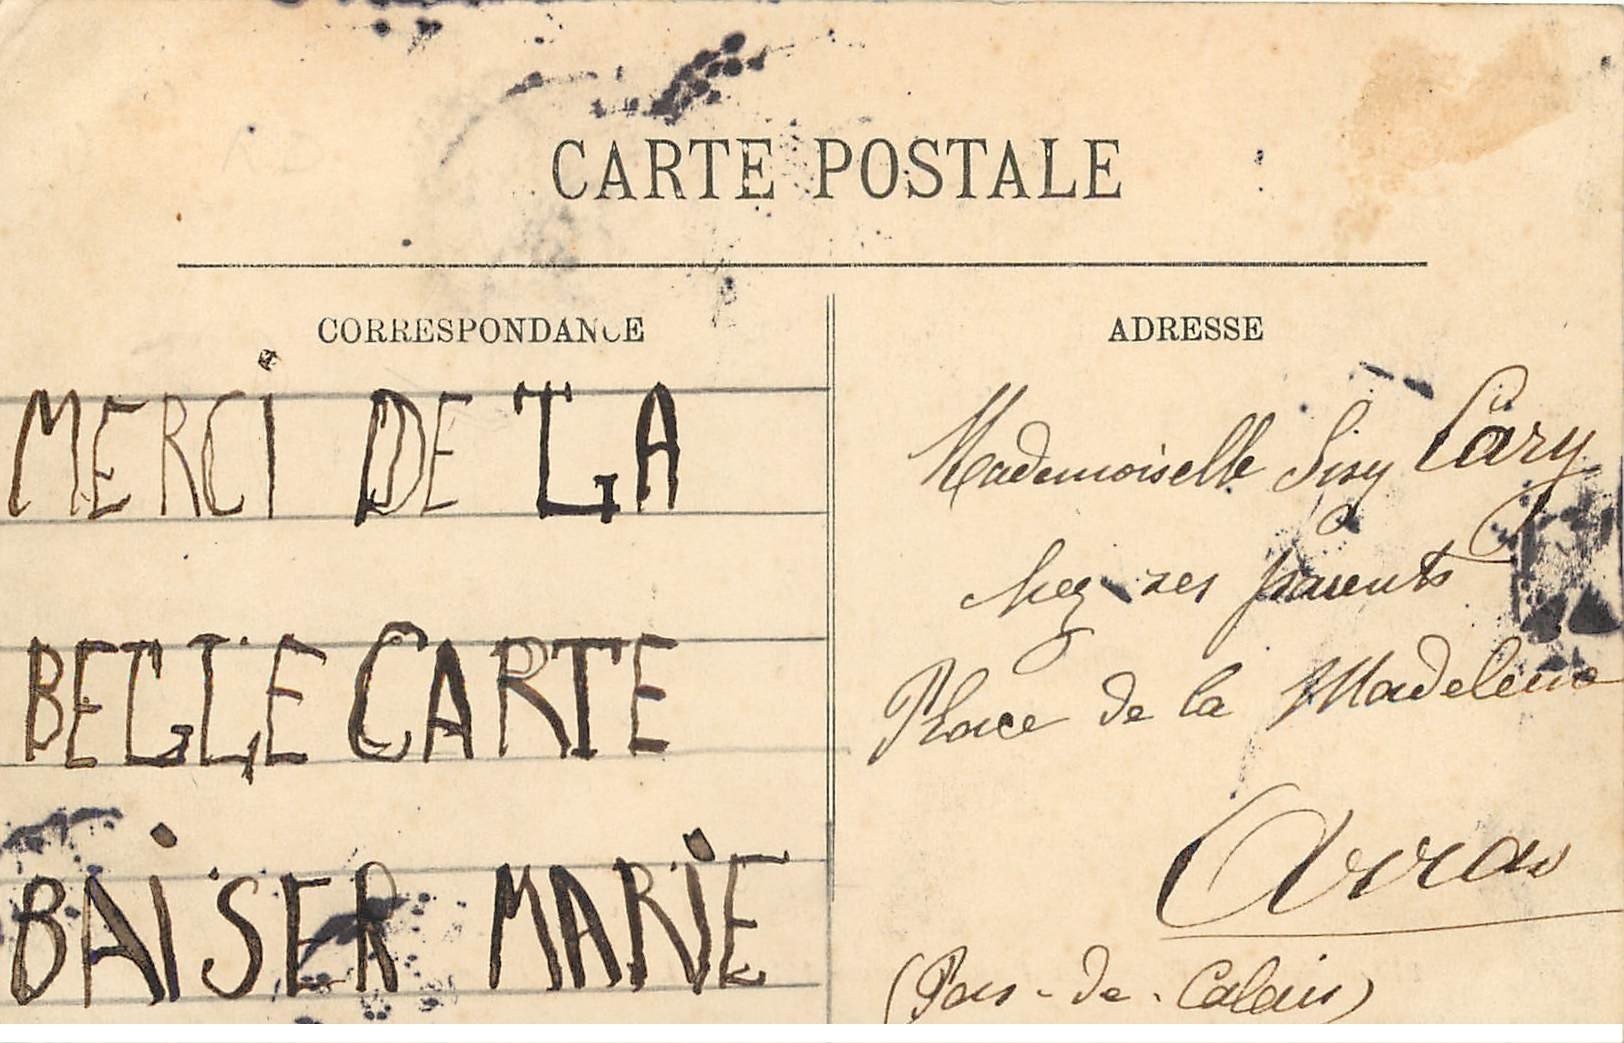 CARTE POSTALE
CORRESPONDANCE
MERCI DE LA
BELLE CARTE
BAISER MARIE
ADRESSE
Mademoiselle Cary
chez ses parents
Place de la Madeleine
Arras
(Pas-de-Calais)